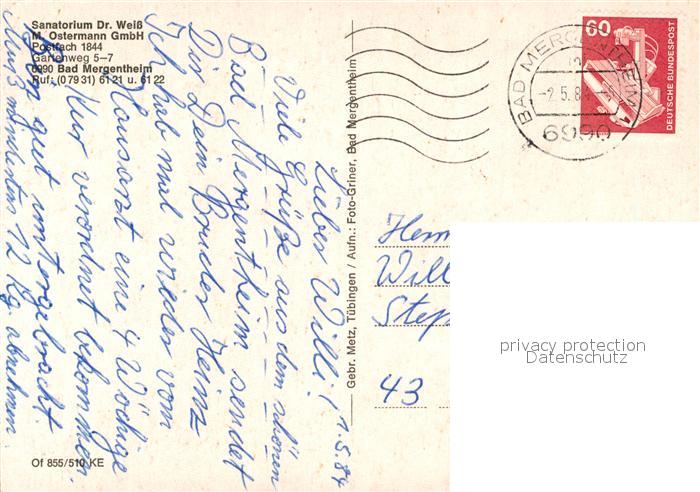 Sanatorium Dr. Weiß
M. Ostermann GmbH
Postfach 1844
Gartenweg 5–7
6990 Bad Mergentheim
Ruf: (0 79 31) 61 21 u. 61 22
1.5.84
Lieber Willi!
Viele Grüße aus dem schönen
Bad Mergentheim sendet
Dir Dein Bruder Heinz
Ich hab mal wieder vom
Hausarzt eine 4 Wöchige
Kur verordnet bekommen.
Bin gut untergebracht.
Muß mindestens 12 Kg. abnehmen.
Of 855/510 KE
Gebr. Metz, Tübingen / Aufn.: Foto-Griner, Bad Mergentheim
BAD MERGENTHEIM
-2.5.84
6990
60
DEUTSCHE BUNDESPOST
Will
Step
43
privacy protection
Datenschutz